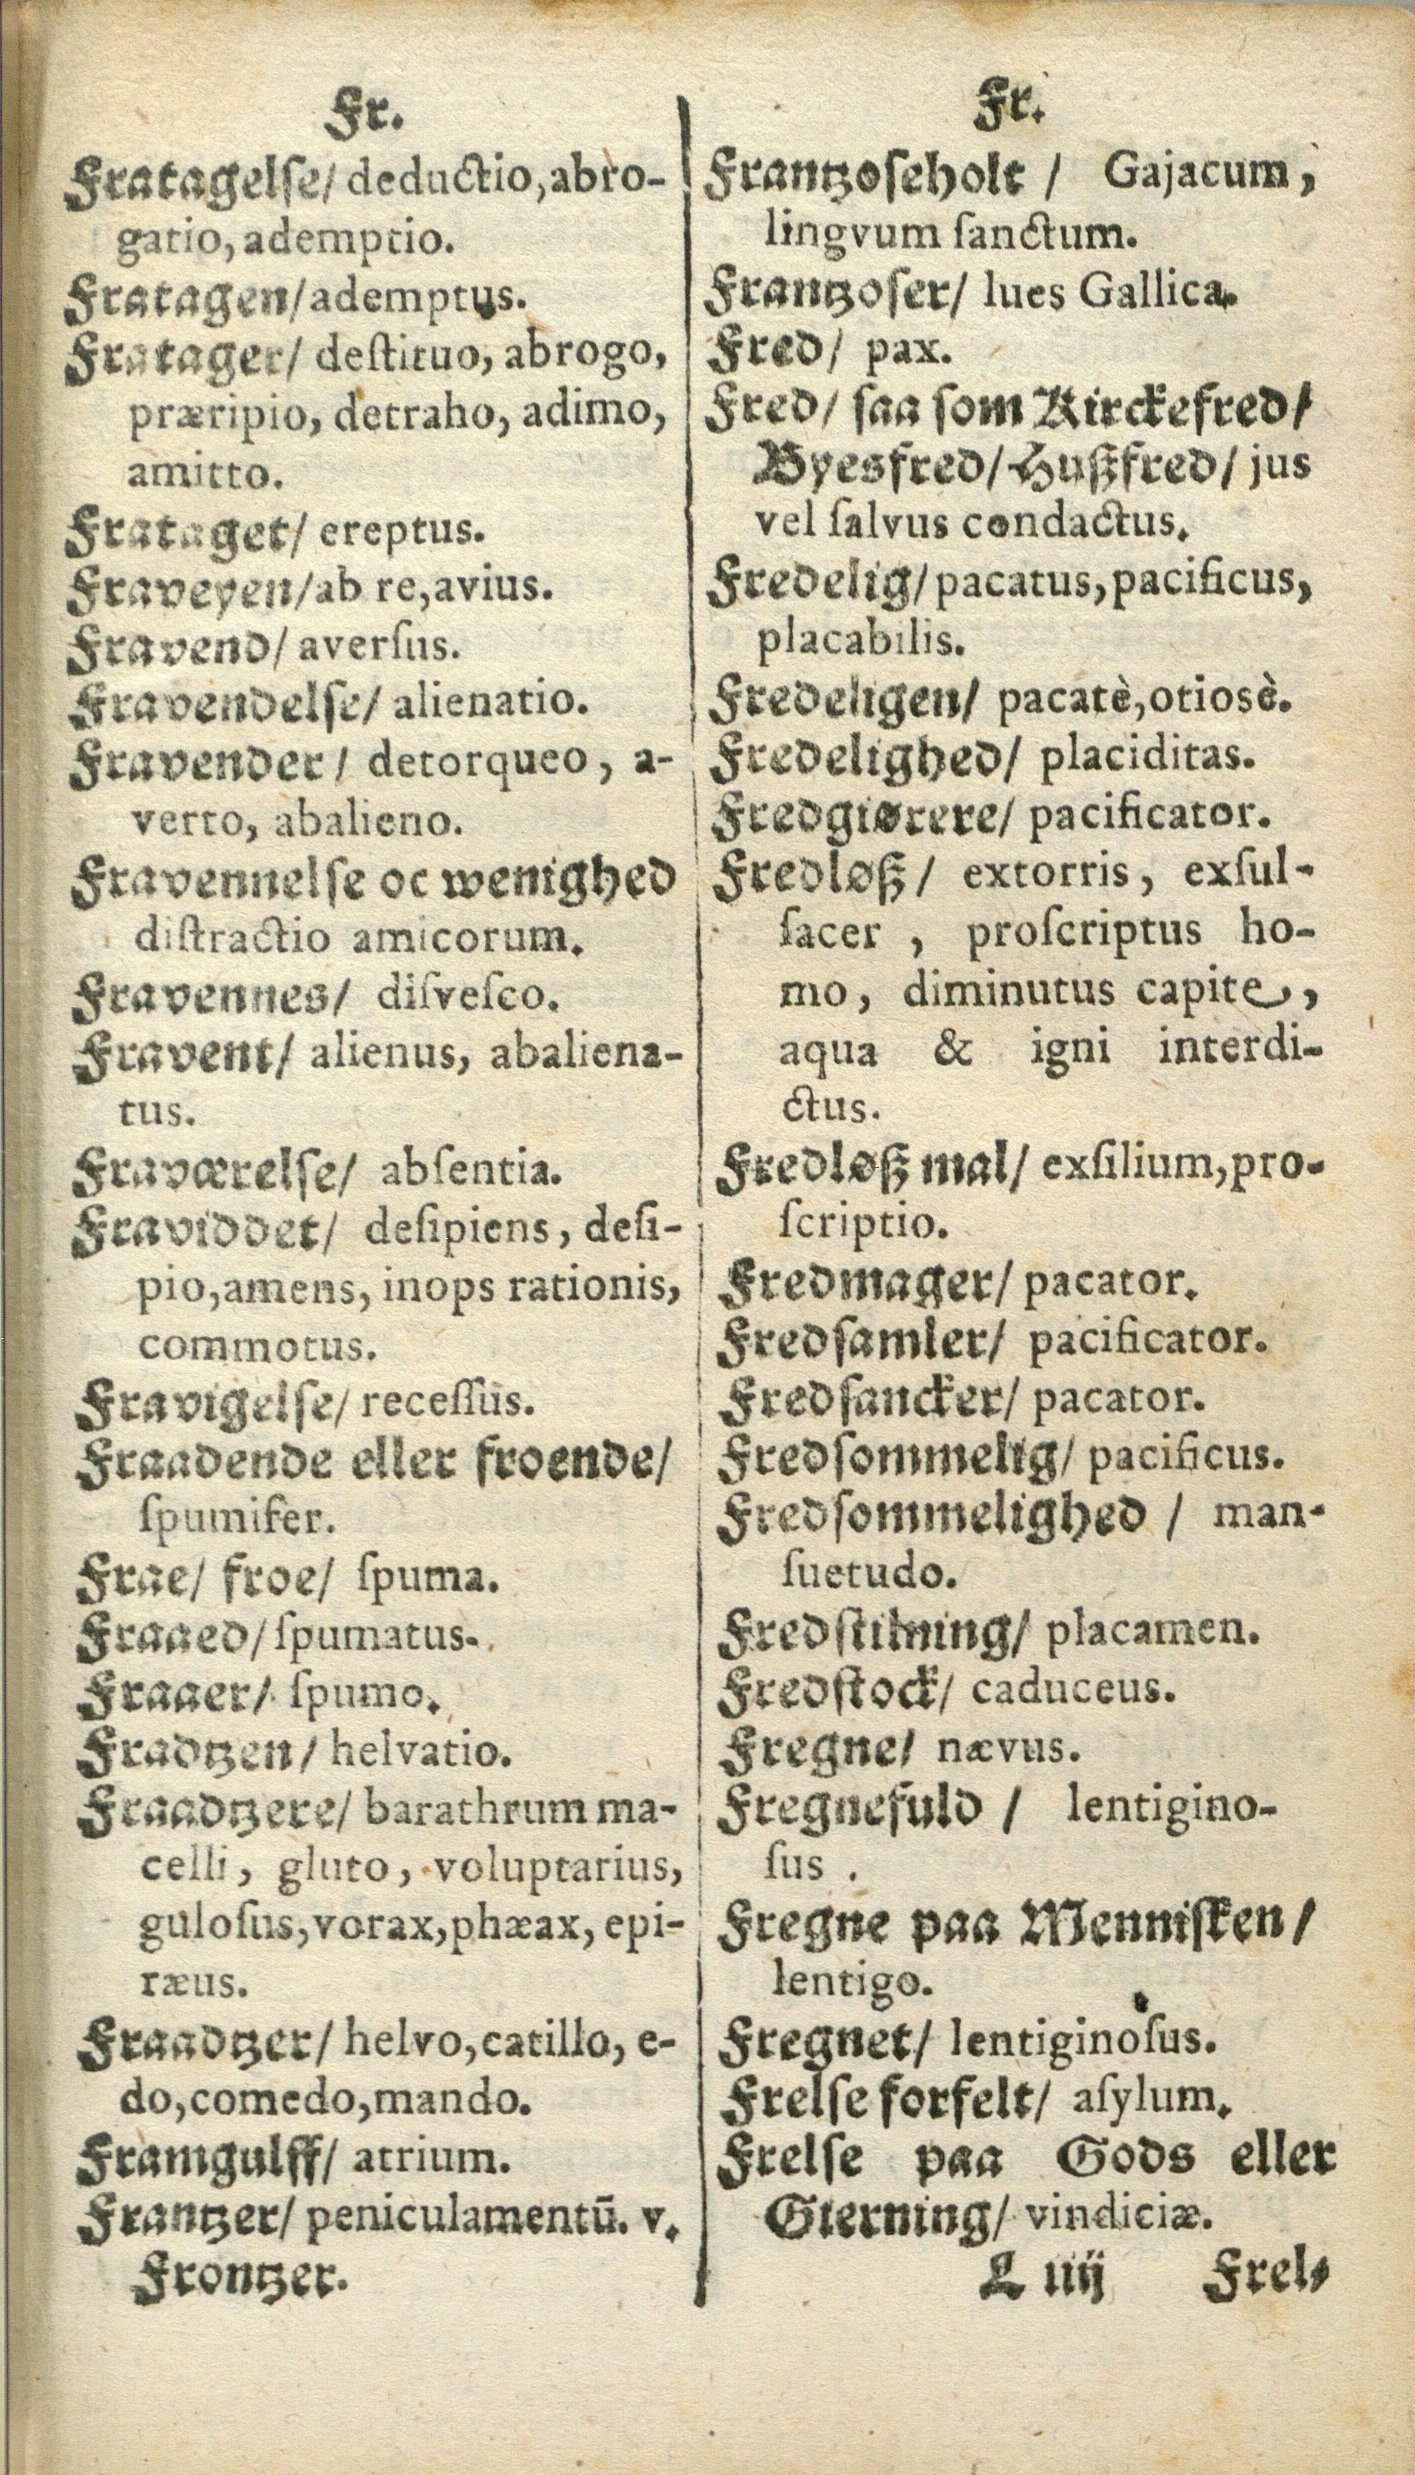 Fr.
Fratagelse/ deductio, abro-
gatio, ademptio.
Fratagen/ ademptus.
Fratager/ deſtituo, abrogo,
præripio, detraho, adimo,
amitto.
Frataget/ ereptus.
Fraveyen/ ab re, avius.
Fravend/ averſus.
Fravendelſe/ alienatio.
Fravender/ detorqueo, a-
verto, abalieno.
Fravennelſe oc wenighed
diſtractio amicorum.
Fravennes/ diſveſco.
Fravent/ alienus, abaliena-
tus.
Fraværelſe/ abſentia.
Fraviddet/ deſipiens, deſi-
pio, amens, inops rationis,
commotus.
Fravigelſe/ receſſus.
Fraadende eller froende/
ſpumifer.
Frae/ froe/ ſpuma.
Fraaed/ ſpumatus.
Fraaer/ ſpumo.
Fradtzen/ helvatio.
Fraadtzere/ barathrum ma-
celli, gluto, voluptarius,
guloſus, vorax, phæax, epi-
ræus.
Fraadtzer/ helvo, catillo, e-
do, comedo, mando.
Framgulff/ atrium.
Frantzer/ peniculamentū. v.
Frontzer.
Fr.
Frantzoſeholt / Gajacum,
lingvum ſanctum.
Frantzoſer/ lues Gallica.
Fred/ pax.
Fred/ ſaa ſom Kirckefred/
Byesfred/ Huſzfred/ jus
vel ſalvus condactus.
Fredelig/ pacatus, pacificus,
placabilis.
Fredeligen/ pacatè, otiosè.
Fredelighed/ placiditas.
Fredgiørere/ pacificator.
Fredløſz/ extorris, exſul-
ſacer , proſcriptus ho-
mo, diminutus capite,
aqua & igni interdi-
ctus.
Fredløſz mal/ exſilium, pro-
ſcriptio.
Fredmager/ pacator.
Fredſamler/ pacificator.
Fredſancker/ pacator.
Fredſommelig/ pacificus.
Fredſommelighed / man-
ſuetudo.
Fredſtilning/ placamen.
Fredſtock/ caduceus.
Fregne/ nævus.
Fregnefuld / lentigino-
ſus .
Fregne paa Menniſken/
lentigo.
Fregnet/ lentiginoſus.
Frelſe forfelt/ aſylum.
Frelſe paa Gods eller
Gierning/ vindiciæ.
L iiij Frel-